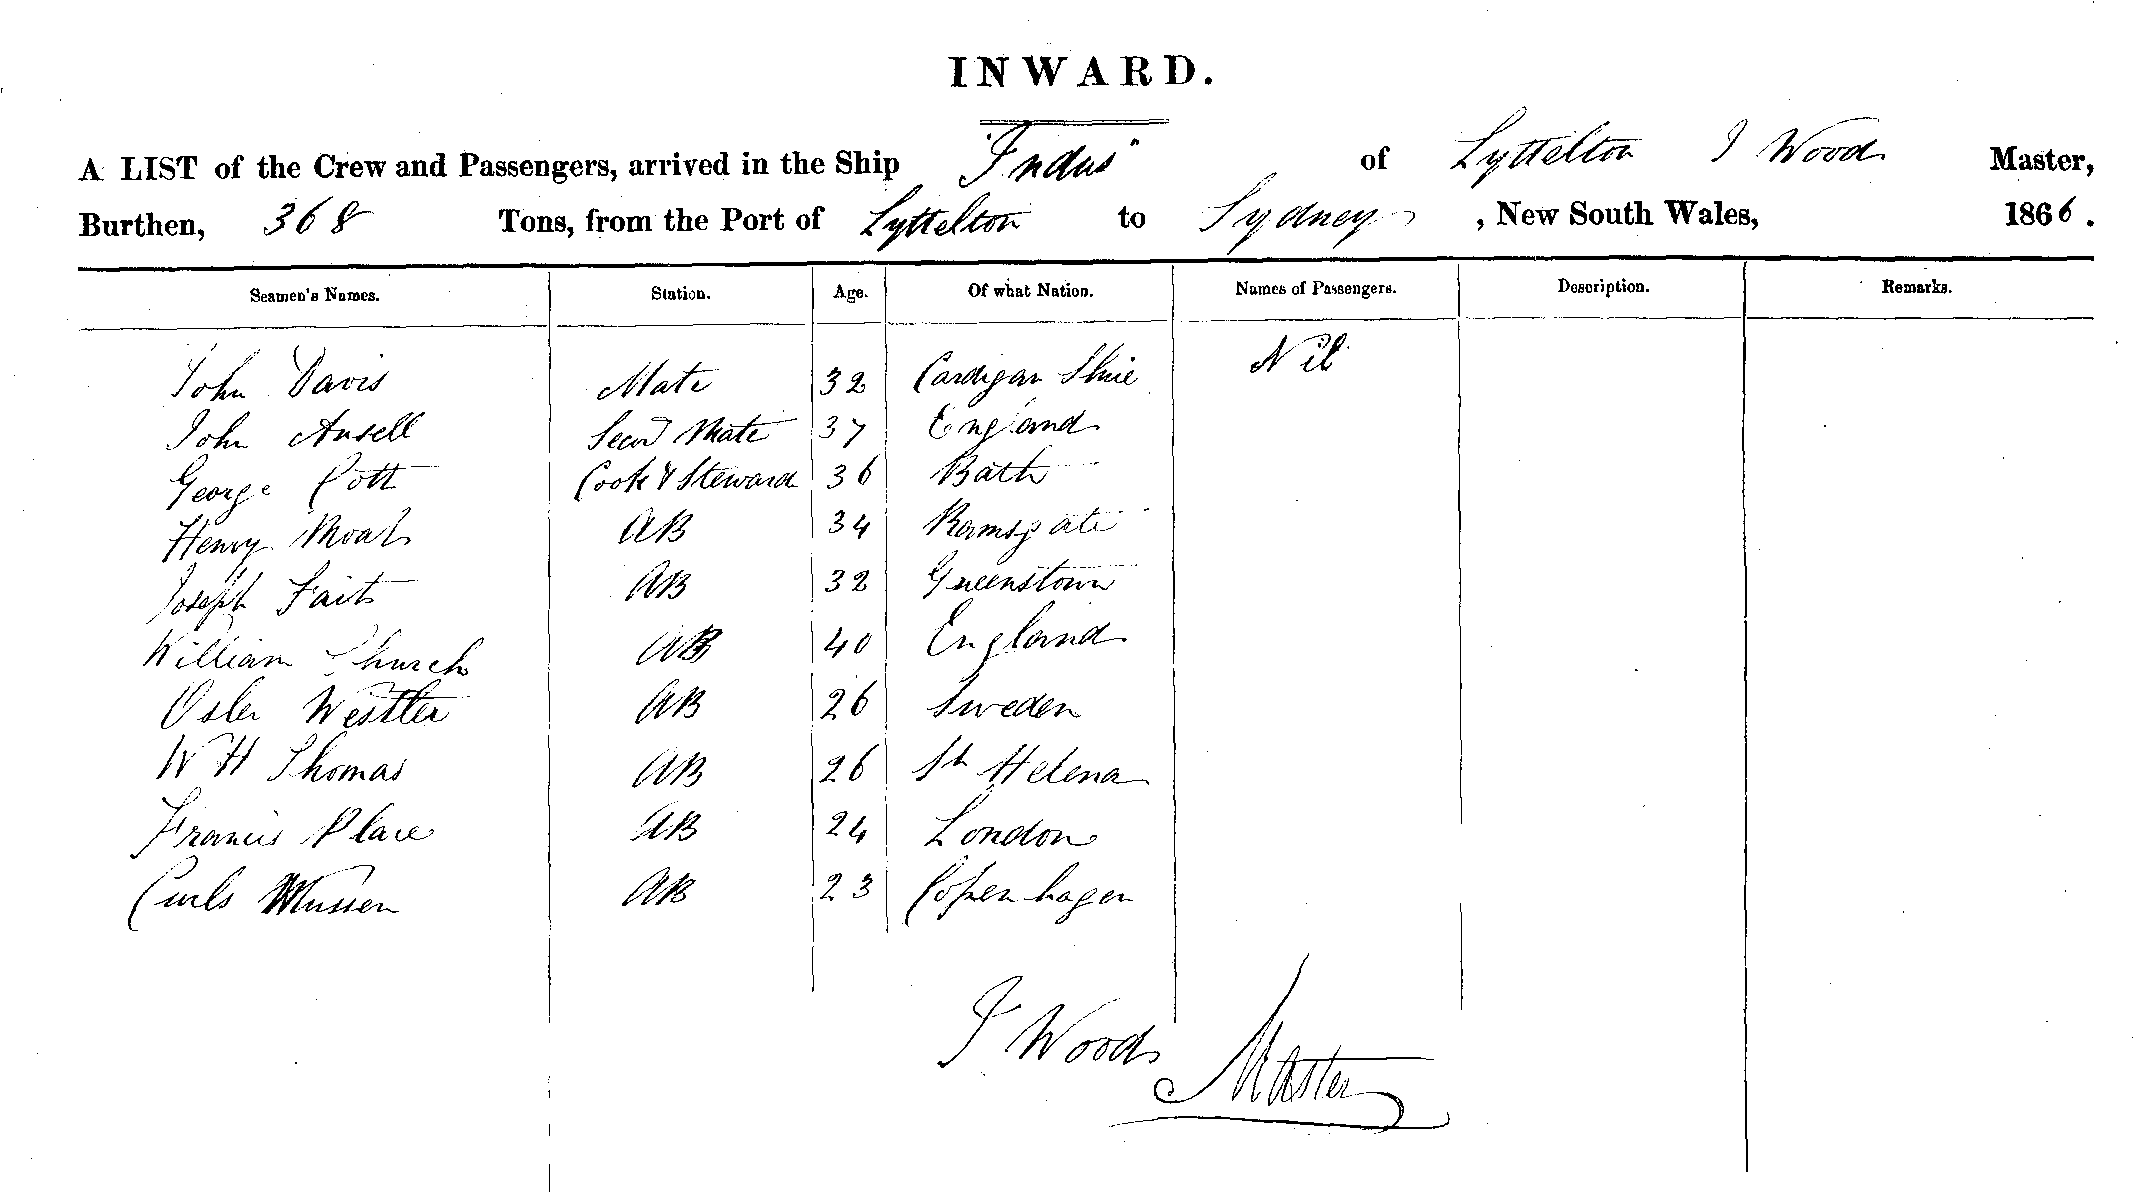 INWARD.
A LIST of the Crew and Passengers, arrived in the Ship "Indus" of Lyttelton J Wood Master,
Burthen, 368 Tons, from the Port of Lyttelton to Sydney, New South Wales, 1866.
Seamen's Names. Station. Age. Of what Nation. Names of Passengers. Description. Remarks.
John Davis Mate 32 Cardigan Shire Nil
John Ansell Secod Mate 37 England
George Cott Cook & Steward 36 Bath
Henry Moat AB 34 Ramsgate
Joseph Fait AB 32 Queenstown
William Church AB 40 England
Westler AB 26 Sweden
W H Thomas AB 26 St Helena
Francis Place AB 24 London
Mussen AB 23 Copenhagen
J Wood Master